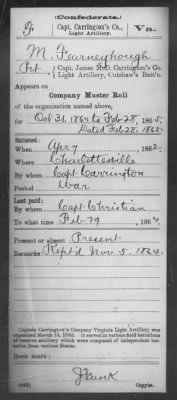 (Confederate.)
F. Capt. Carrington's Co., Va.
Light Artillery.
M. Fearneyhough
Pvt, Capt. James McD. Carrington's Co.
Light Artillery, Cutshaw's Batt'n.
Appears on
Company Muster Roll
of the organization named above,
for Oct 31, 1864 to Feb 28, 1865.
Dated Feb 28, 1865.
Enlisted:
When Apr 7, 1862.
Where Charlottesville
By whom Capt Carrington
Period War
Last paid:
By whom Capt Christian
To what time Feb 29, 1864.
Present or absent Present
Remarks: Rept'd Nov 5, 1864.
Captain Carrington's Company Virginia Light Artillery was
organized March 13, 1862. It served in various field battalions
of artillery which were composed of independent bat-
teries from various States.
Book mark:
J Funk
(642) Copyist.